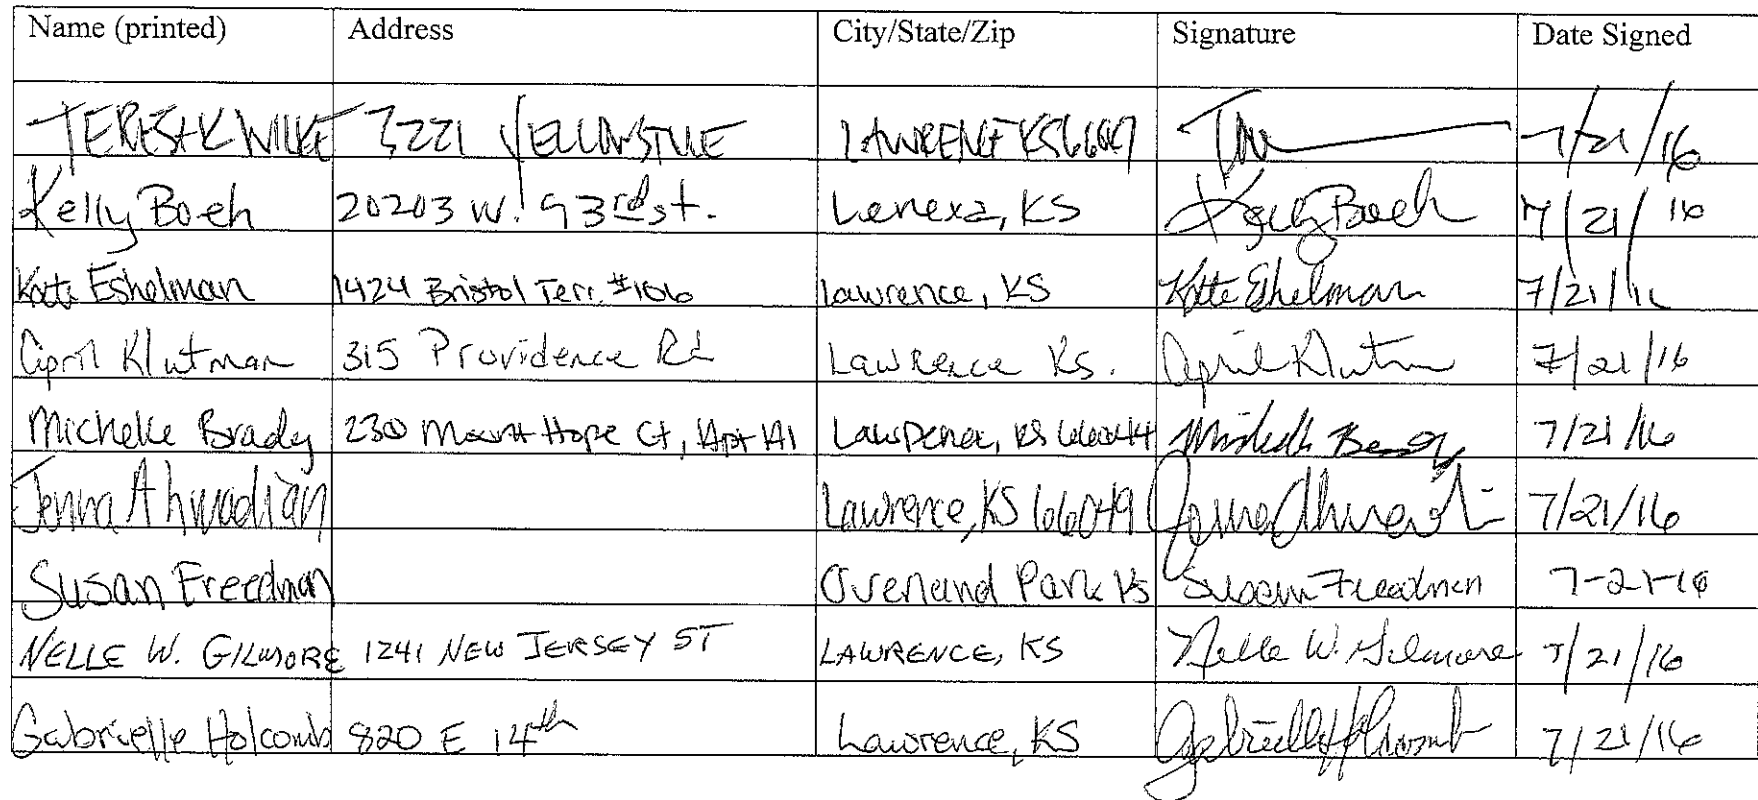 Name (printed) Address City/State/Zip Signature Date Signed
TERESA K WILKE 3221 YELLOWSTONE LAWRENCE KS 66047 7/21/16
Kelly Boeh 20203 W. 93rd st. Lenexa, KS Kelly Boeh 7/21/16
Kate Eshelman 1424 Bristol Terr. #106 Lawrence, KS Kate Eshelman 7/21/16
April Klutman 315 Providence Rd Lawrence Ks. April Klutm 7/21/16
Michelle Brady 230 Mount Hope Ct, Apt A1 Lawrence, KS 66044 Michelle Brady 7/21/16
Jenna Ahmadian Lawrence, KS 66049 7/21/16
Susan Freedman Overland Park KS Susan Freedman 7-21-16
NELLE W. GILMORE 1241 NEW JERSEY ST LAWRENCE, KS Nelle W. Gilmore 7/21/16
Gabrielle Holcomb 820 E 14th Lawrence, KS Gabrielle Holcomb 7/21/16